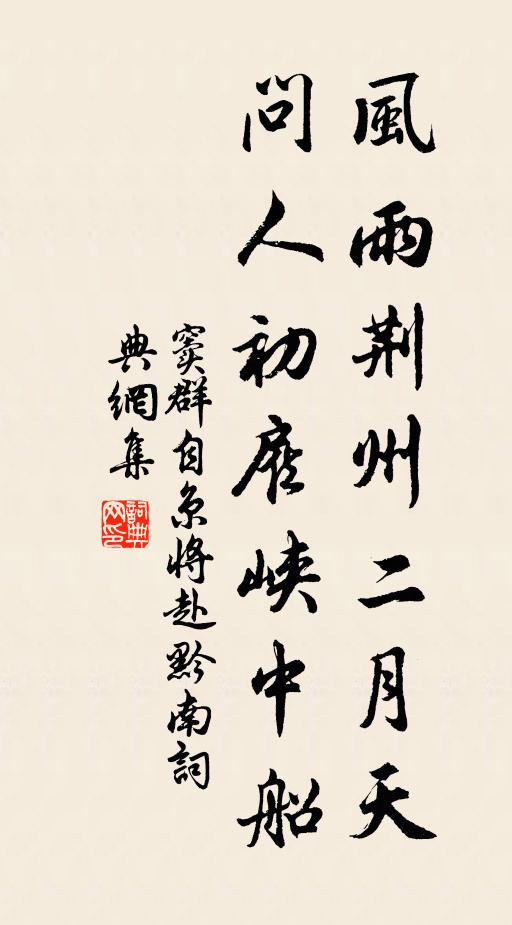 風雨荆州二月天
問人初雇峽中船
竇群自京將赴黔南詞
典網集
詞典
网印